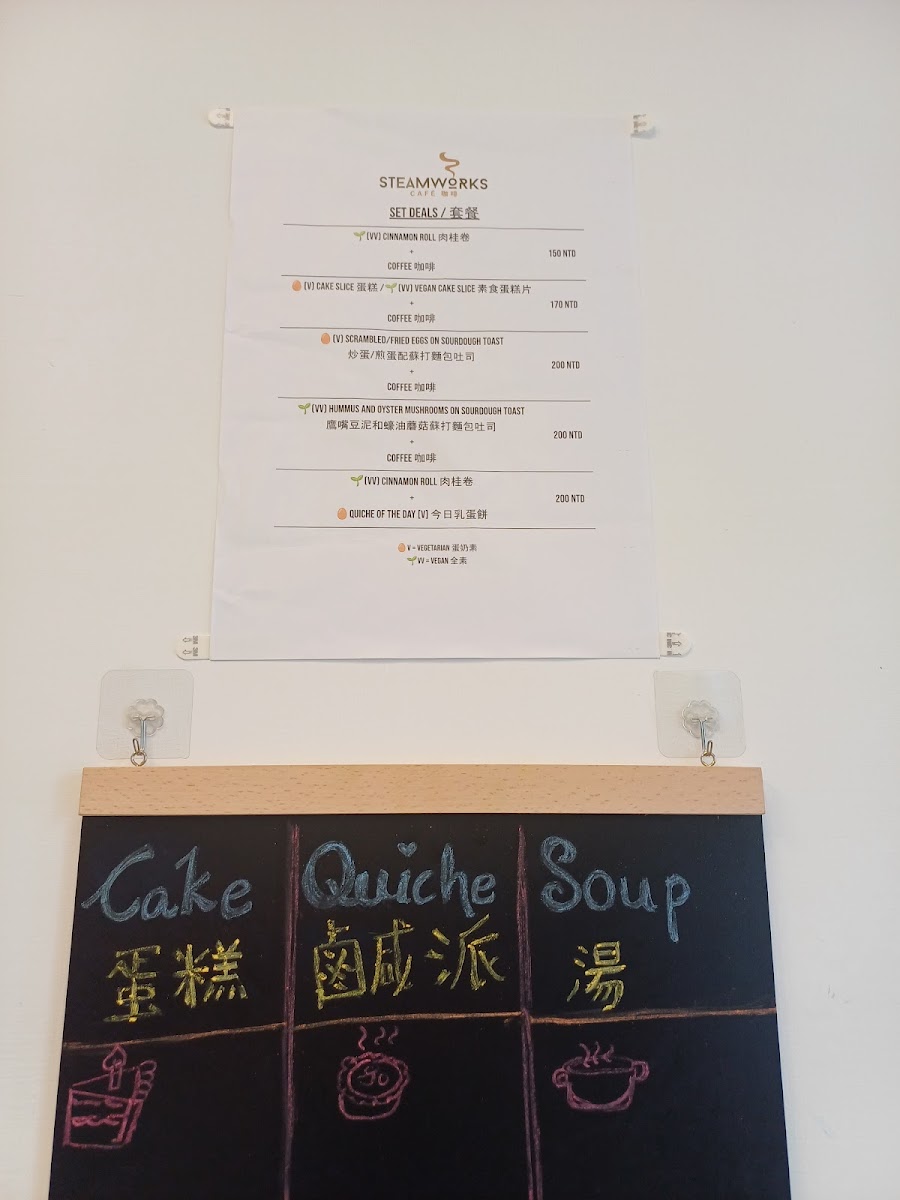 STEAMWORKS
CAFÉ 咖啡
SET DEALS / 套餐
(VV) CINNAMON ROLL 肉桂卷
+
COFFEE 咖啡
150 NTD
(V) CAKE SLICE 蛋糕 / (VV) VEGAN CAKE SLICE 素食蛋糕片
+
COFFEE 咖啡
170 NTD
(V) SCRAMBLED/FRIED EGGS ON SOURDOUGH TOAST
炒蛋/煎蛋配蘇打麵包吐司
+
COFFEE 咖啡
200 NTD
(VV) HUMMUS AND OYSTER MUSHROOMS ON SOURDOUGH TOAST
鷹嘴豆泥和蠔油蘑菇蘇打麵包吐司
+
COFFEE 咖啡
200 NTD
(VV) CINNAMON ROLL 肉桂卷
+
QUICHE OF THE DAY (V) 今日乳蛋餅
200 NTD
V = VEGETARIAN 蛋奶素
VV = VEGAN 全素
Cake
蛋糕
Quiche
鹵咸派
Soup
湯